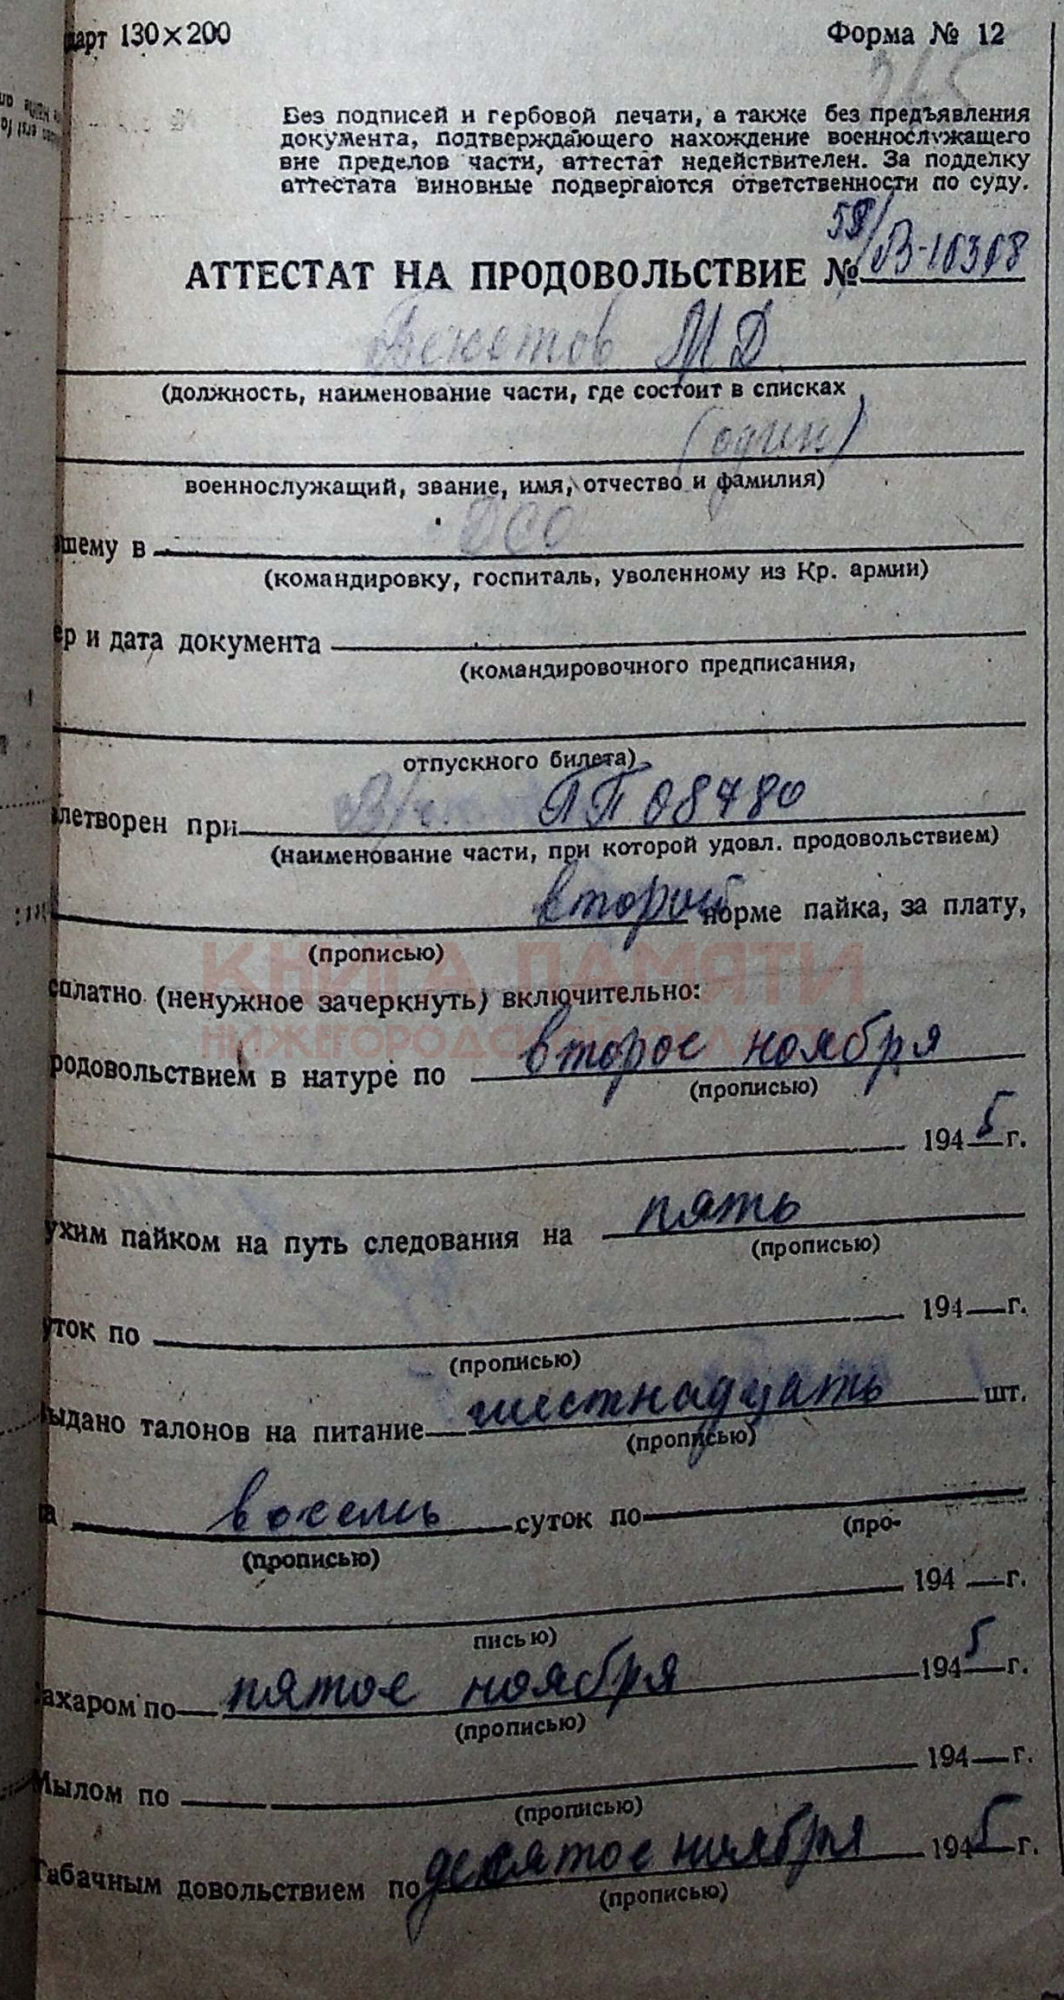 дарт 130×200 Форма № 12
Без подписей и гербовой печати, а также без предъявления
документа, подтверждающего нахождение военнослужащего
вне пределов части, аттестат недействителен. За подделку
аттестата виновные подвергаются ответственности по суду.
АТТЕСТАТ НА ПРОДОВОЛЬСТВИЕ №
Бекетов М Д
(должность, наименование части, где состоит в списках
(один)
военнослужащий, звание, имя, отчество и фамилия)
шему в
(командировку, госпиталь, уволенному из Кр. армии)
ер и дата документа
(командировочного предписания,
отпускного билета)
летворен при В/ч ПП 08780
(наименование части, при которой удовл. продовольствием)
второй норме пайка, за плату,
(прописью)
КНИГА ПАМЯТИ
сплатно (ненужное зачеркнуть) включительно:
НИЖЕГОРОДСКОЙ ОБЛАСТИ
родовольствием в натуре по второе ноября
(прописью)
1945 г.
ухим пайком на путь следования на пять
(прописью)
уток по 194 г.
(прописью)
ыдано талонов на питание шестнадцать шт.
(прописью)
а восемь суток по
(прописью) (про-
194 г.
писью)
ахаром по пятое ноября 1945 г.
(прописью)
Мылом по 194 г.
(прописью)
Табачным довольствием по десятое ноября 1945 г.
(прописью)